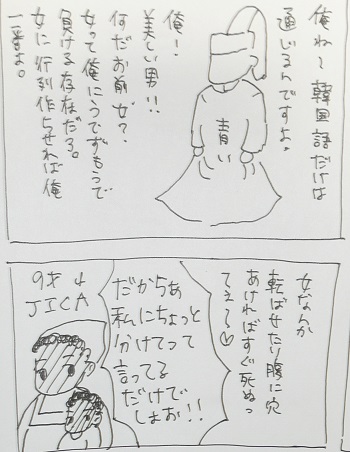 俺ね〜韓国語だけは
通じるんですよ。
青い
俺！
美しい男!!
何だお前女？
女って俺にうでずもうで
負ける存在だろ。
女に行列作らせれば俺
一番よ。
女なんか
転ばせたい腹に穴
あければすぐ死ぬっ
てぇ〜♡
だからぁ
私にちょっと
分けてって
言ってる
だけで
しょお!!
9才
JICA